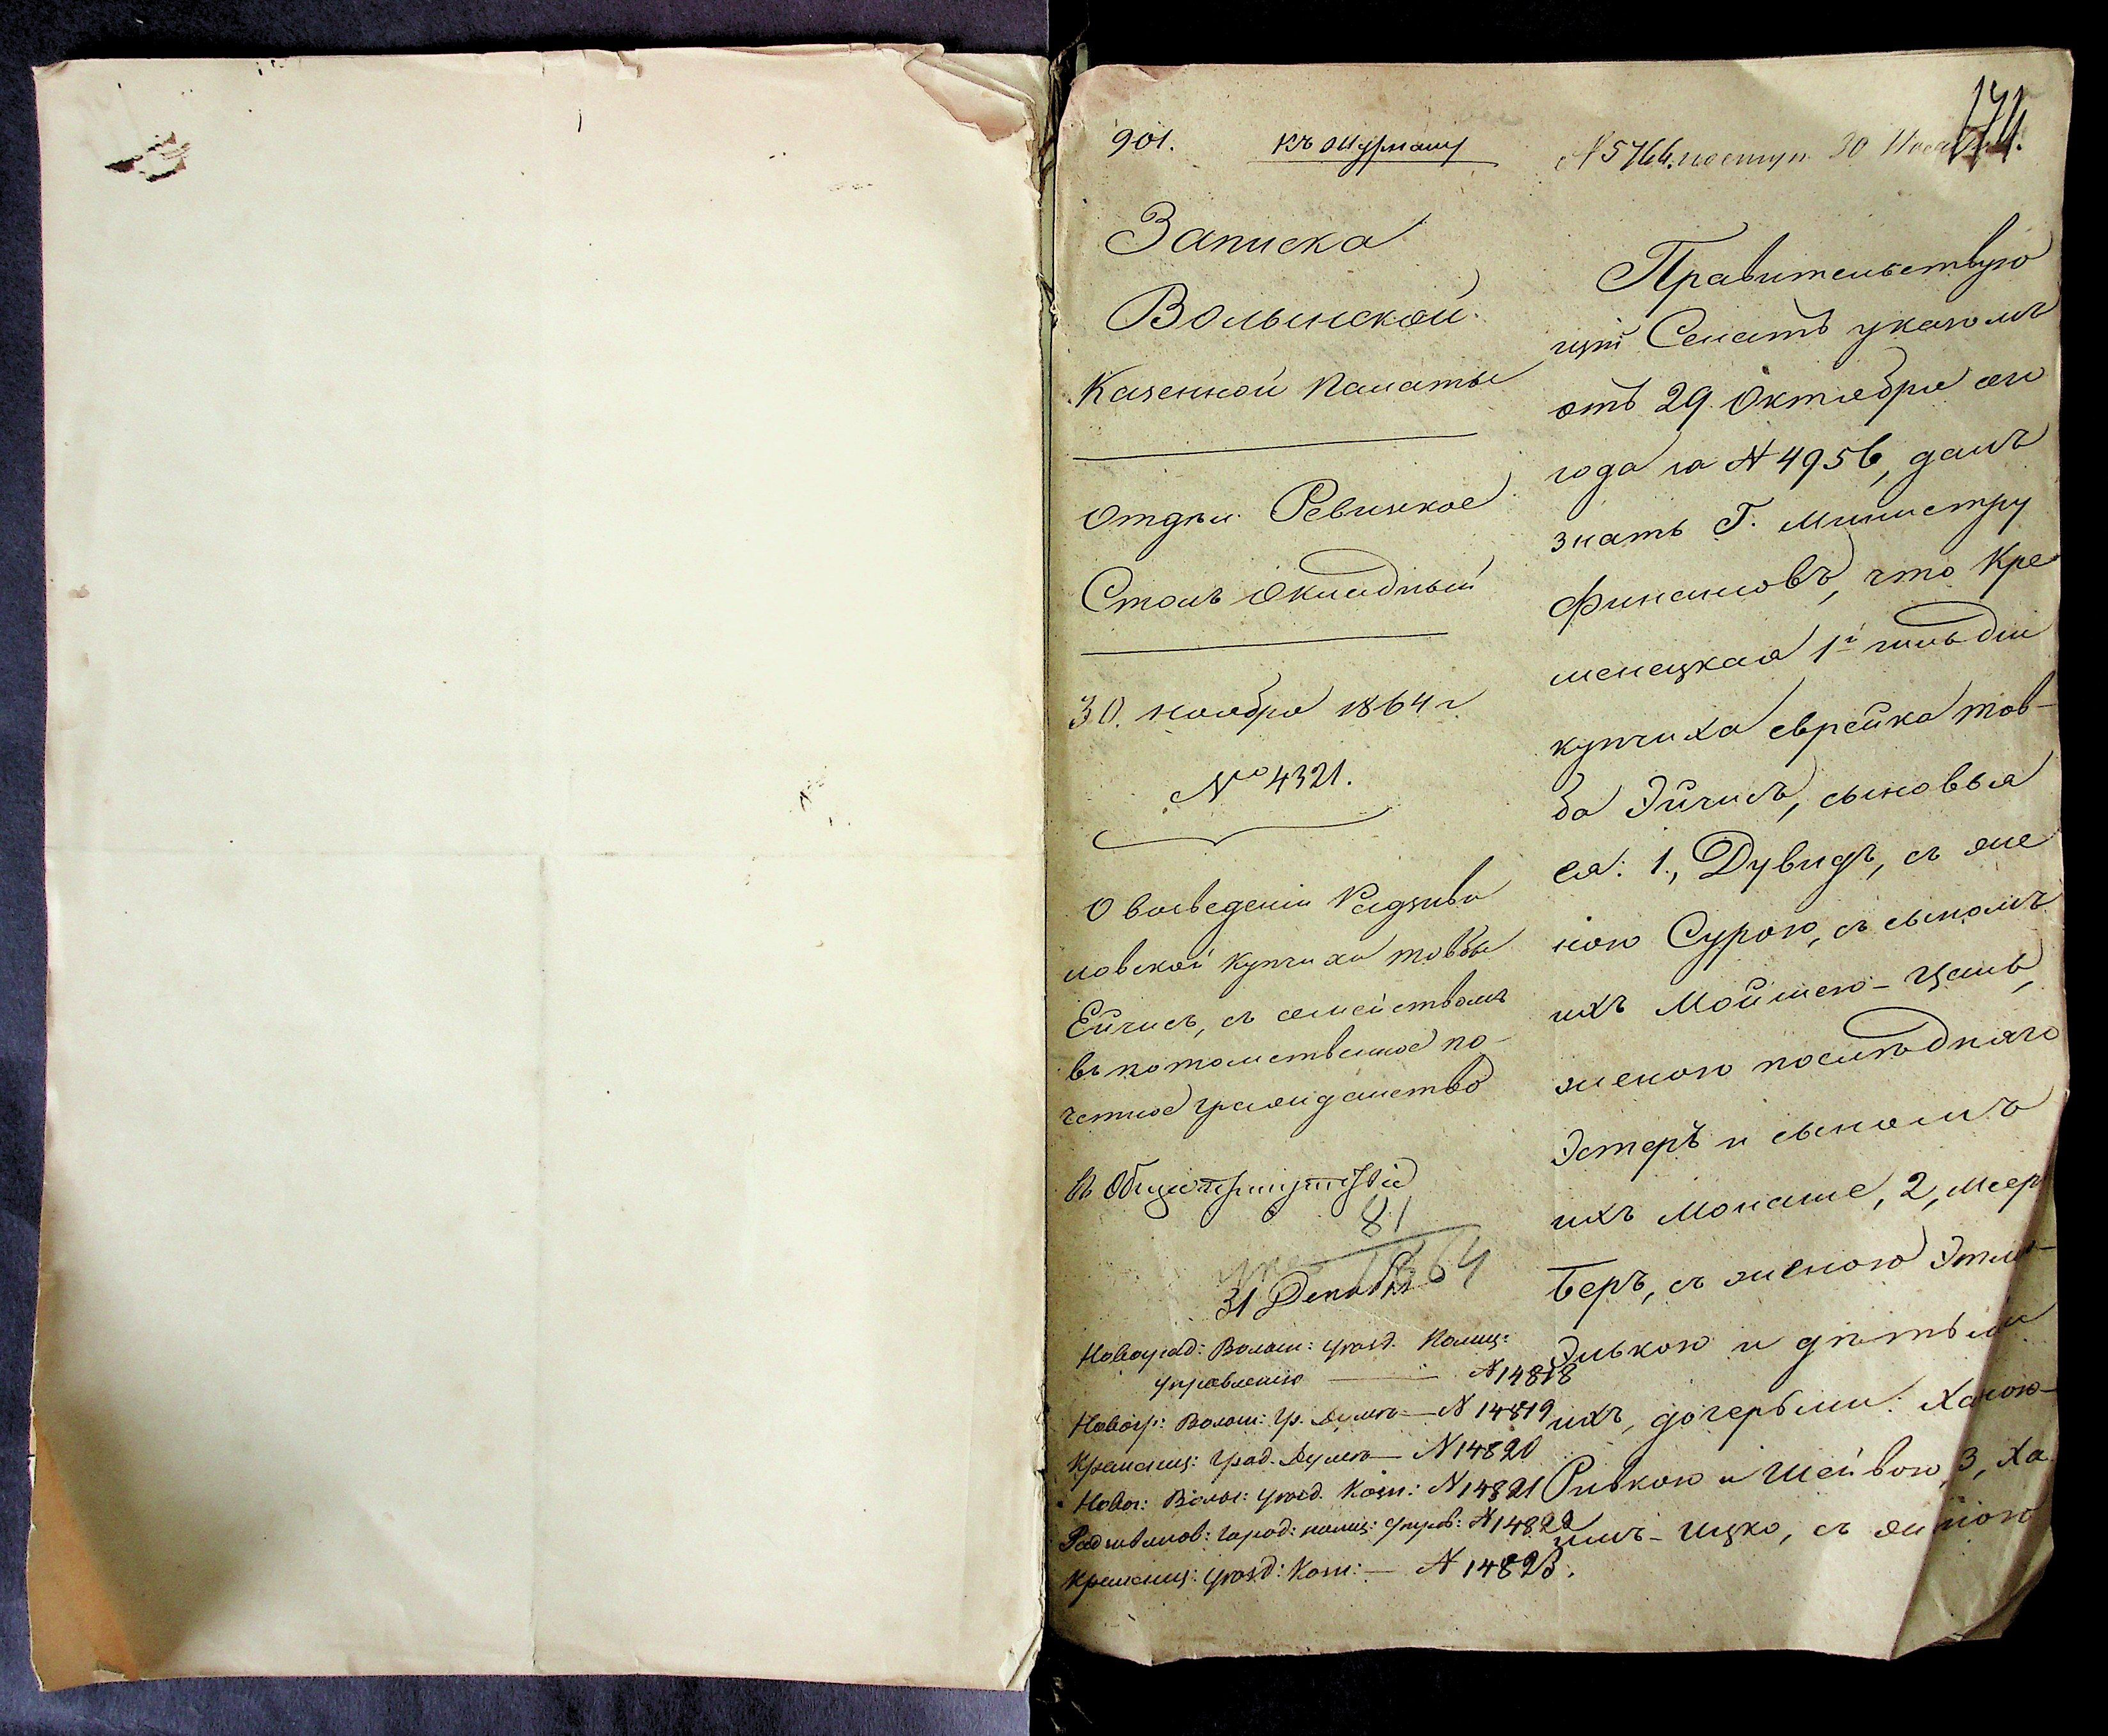 901.
къ журналу
№ 5766. поступ. 30 Нояб
174.
Записка
Волынской
Казенной Палаты
Отдѣл. Ревизское
Столъ Окладный
30. ноября 1864 г.
№ 4321.
О возведеніи Радзиви
ловской купчихи товбы
Ейчисъ, съ семействомъ
въ потомственное по-
четное гражданство
въ Общее присутствіе
81
1864
31 Декабря
Новоград: Волын: уѣзд. Полиц:
управленію — № 14818
Новогр: Волын: Гр. Думѣ — № 14819
Кременец: Град. Думѣ — № 14820
Новог: Волын: уѣзд. Козн: № 14821
Радзивилов: город: полиц: управ: № 14822
Кременец: уѣзд: Козн: — № 14823.
Правительствую
щій Сенатъ указомъ
отъ 29 Октября сего
года за № 4956, далъ
знать Г. Министру
Финансовъ, что Кре
менецкая 1й гильдіи
купчиха еврейка тов-
ба Эйчисъ, сыновья
ея: 1., Дувидъ, съ же
ною Сурою, съ сыномъ
ихъ Мойшею-Цаль,
женою послѣдняго
Эстеръ и сыномъ
ихъ Монаше, 2, Меер
Беръ, съ женою Этля-
Элькою и дѣтьми
ихъ, дочерьми: Ханою-
Ривкою и Шейвою, 3, Ха
имъ-Ицко, съ женою